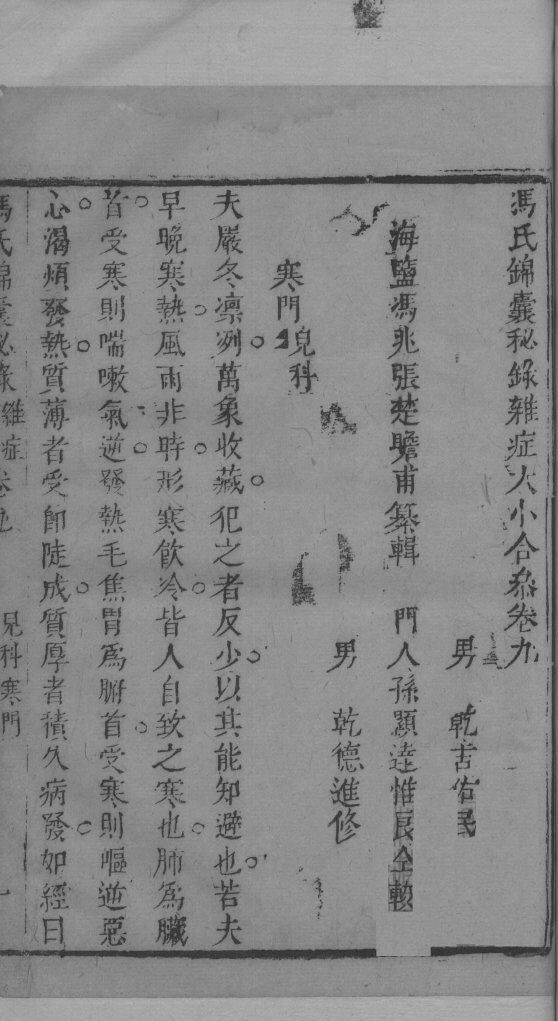 馮氏錦囊秘錄雜症大小合叅卷九
男 乾吉佑民
海鹽馮兆張楚瞻甫纂輯 門人孫顯達惟良仝較
男 乾德進修
寒門兒科
夫嚴冬凛冽萬象收藏犯之者反少以其能知避也若夫
早晚寒熱風雨非時形寒飲冷皆人自致之寒也肺為臟
首受寒則喘嗽氣逆發熱毛焦胃為腑首受寒則嘔逆惡
心渴煩發熱質薄者受即陡成質厚者積久病發如經曰
馮氏錦囊秘錄 雜症卷九 兒科寒門 一